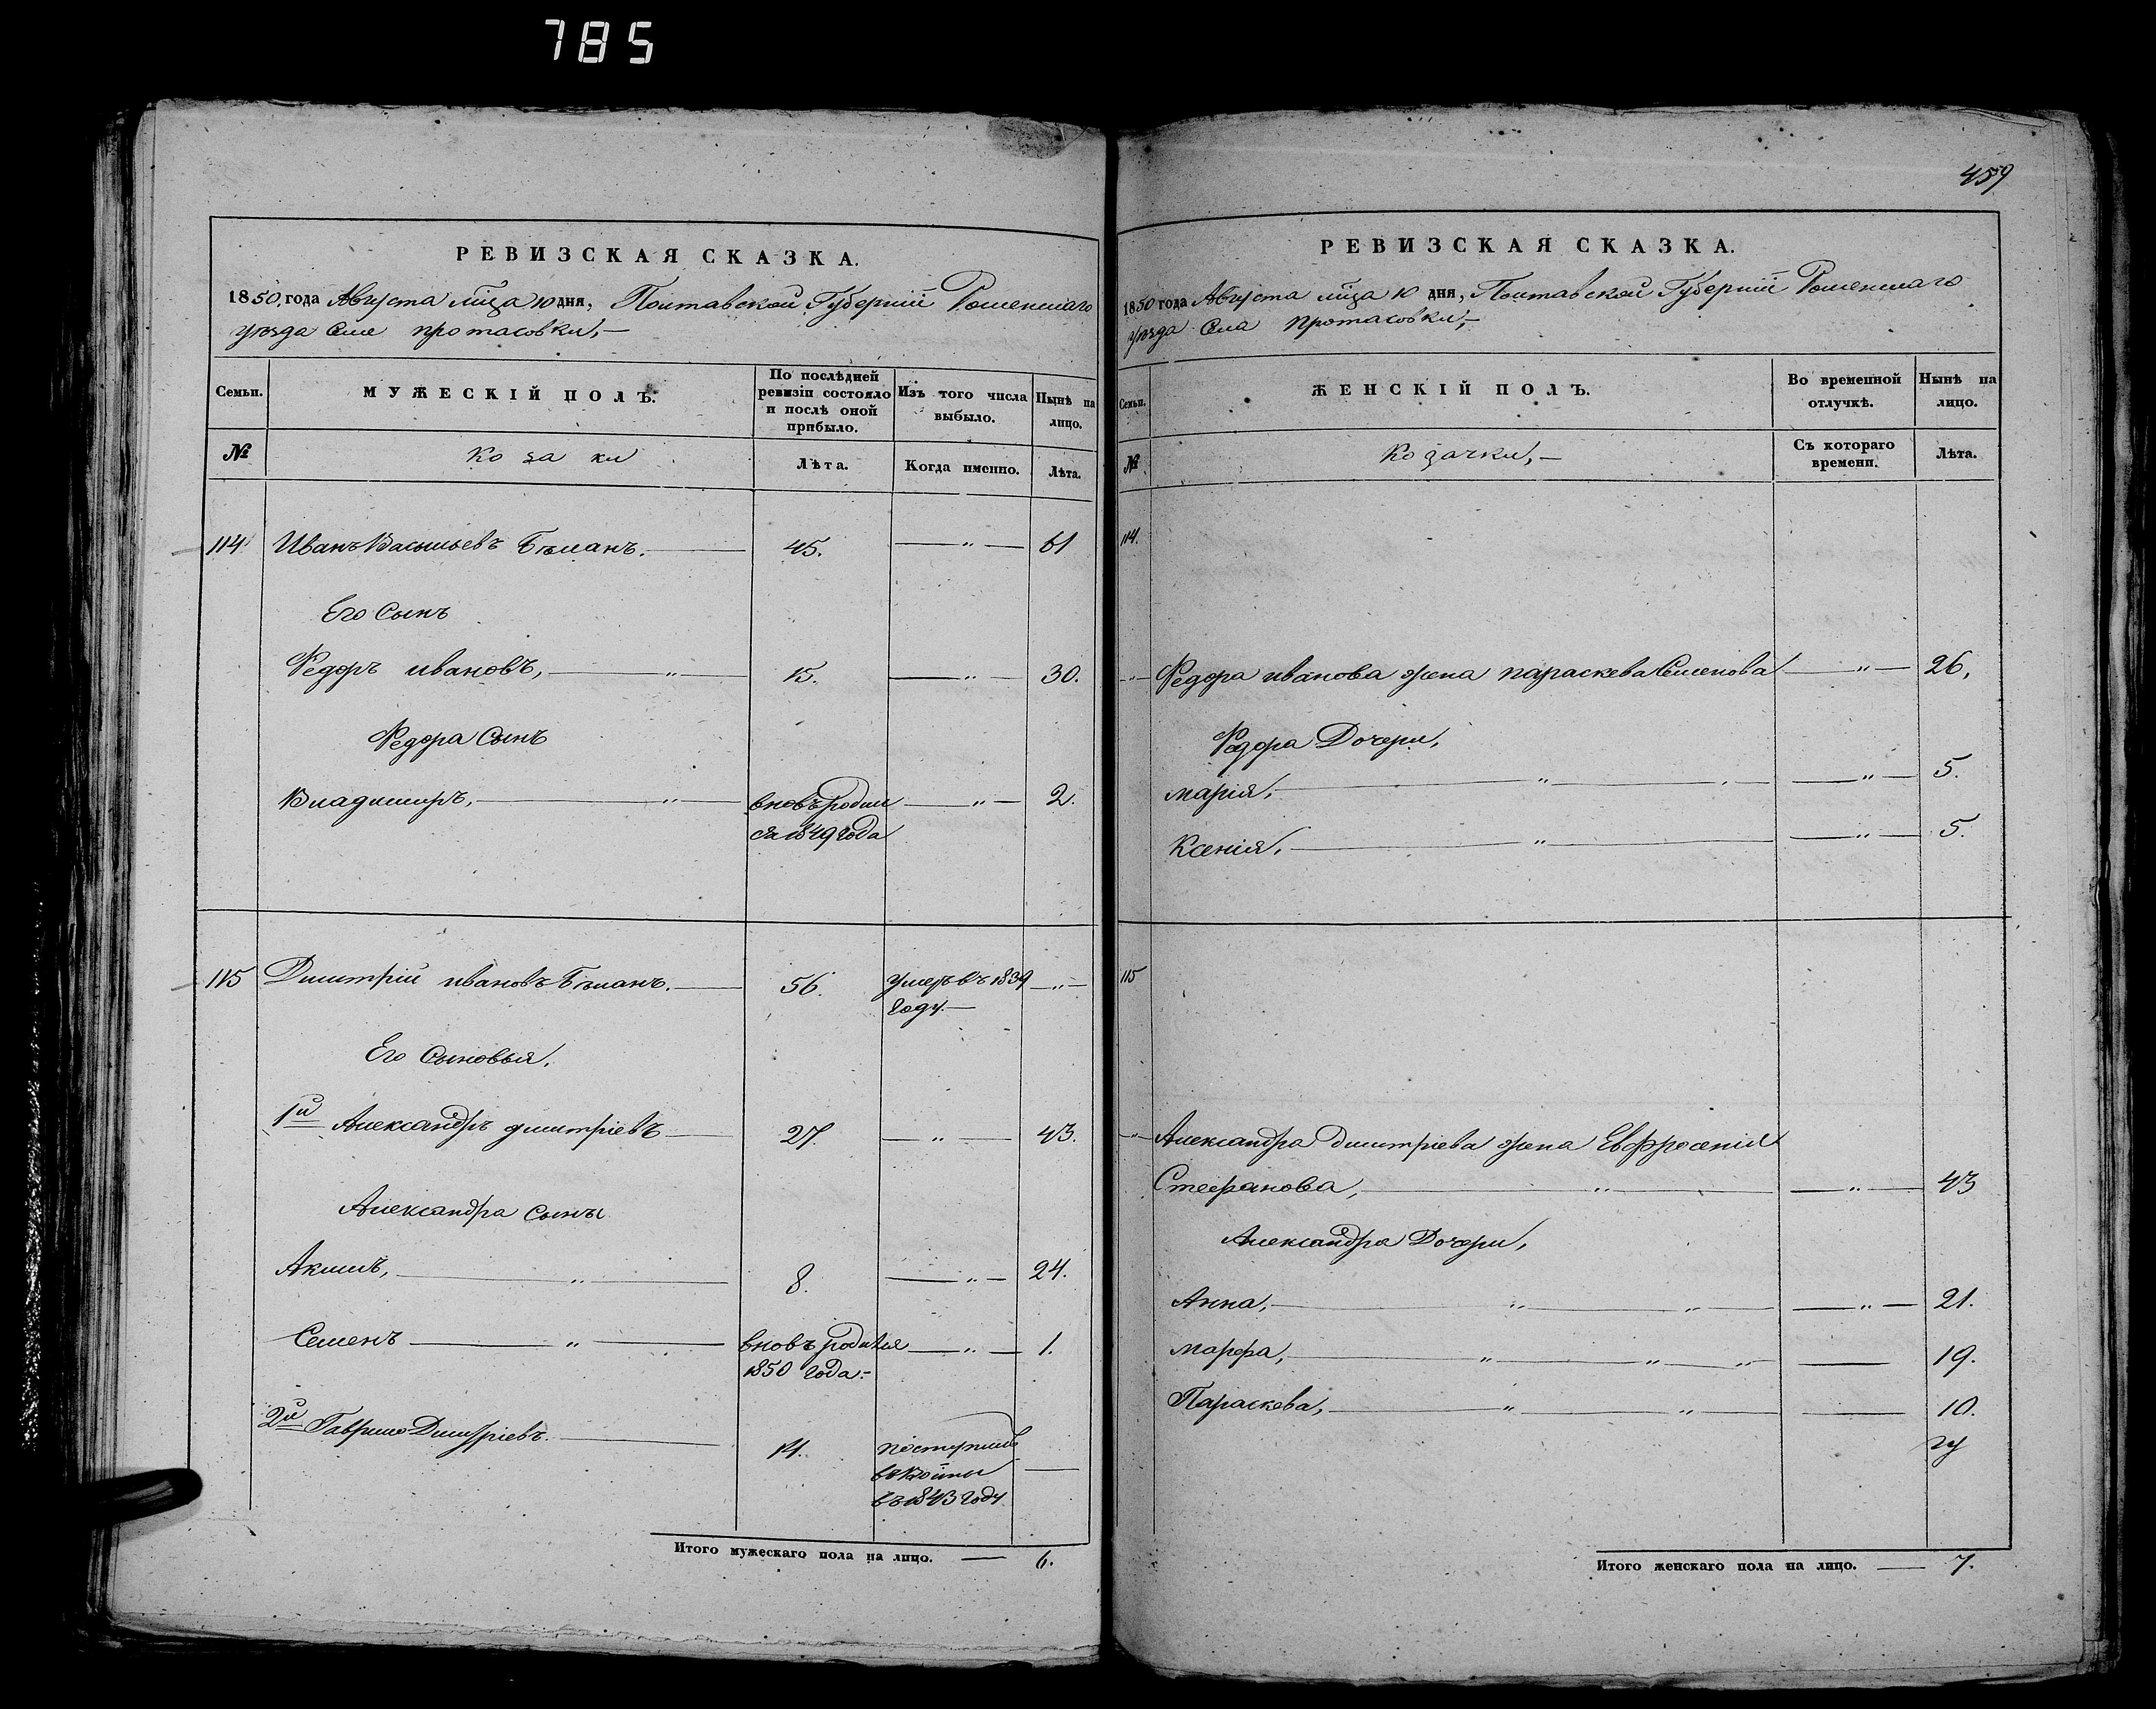 785
459
РЕВИЗСКАЯ СКАЗКА.
1850 года Августа мѣца 10 дня, Полтавской Губерніи Роменскаго
уѣзда Села Протасовки,
Семьи.
МУЖЕСКІЙ ПОЛЪ.
По послѣдней
ревизіи состояло
и послѣ оной
прибыло.
Изъ того числа
выбыло.
Нынѣ на
лицо.
№
Козаки
Лѣта.
Когда именно.
Лѣта.
114 Иванъ Васильевъ 45. — „ — 61
Его Сынъ
Федоръ ивановъ, — „ — 15. — „ — 30.
Федора Сынъ
Владимиръ, — „ — вновь родил — „ — 2.
ся 1849 года
115 Димитрій ивановъ 56. умеръ въ 1839 — „ —
году. —
Его Сыновья,
1й Александръ дмитріевъ — 27. — „ — 43.
Александра Сыны
Акимъ, — „ — 8. — „ — 24.
Семенъ — „ — вновь родился — „ — 1.
1850 года. —
2й Гаврило Димитріевъ. — 14. поступилъ —
въ 1843 году
Итого мужескаго пола на лицо. — 6.
РЕВИЗСКАЯ СКАЗКА.
1850 года Августа мѣца 10 дня, Полтавской Губерніи Роменскаго
уѣзда Села Протасовки, —
Семьи.
ЖЕНСКІЙ ПОЛЪ.
Во временной
отлучкѣ.
Нынѣ на
лицо.
№
Козачки, —
Съ котораго
времени.
Лѣта.
114.
„ — Федора иванова жена параскева Семенова — „ — 26.
Федора Дочери,
марія, — „ — — „ — 5.
Ксенія, — „ — — „ — 5.
115
„ — Александра Димитріева жена Евфросенія
Стефанова, — „ — — „ — 43
Александра Дочери,
Анна, — „ — „ — — „ — 21.
марфа, — „ — „ — „ — 19.
Параскева, — „ — „ — — 10.
Итого женскаго пола на лицо. — 7.